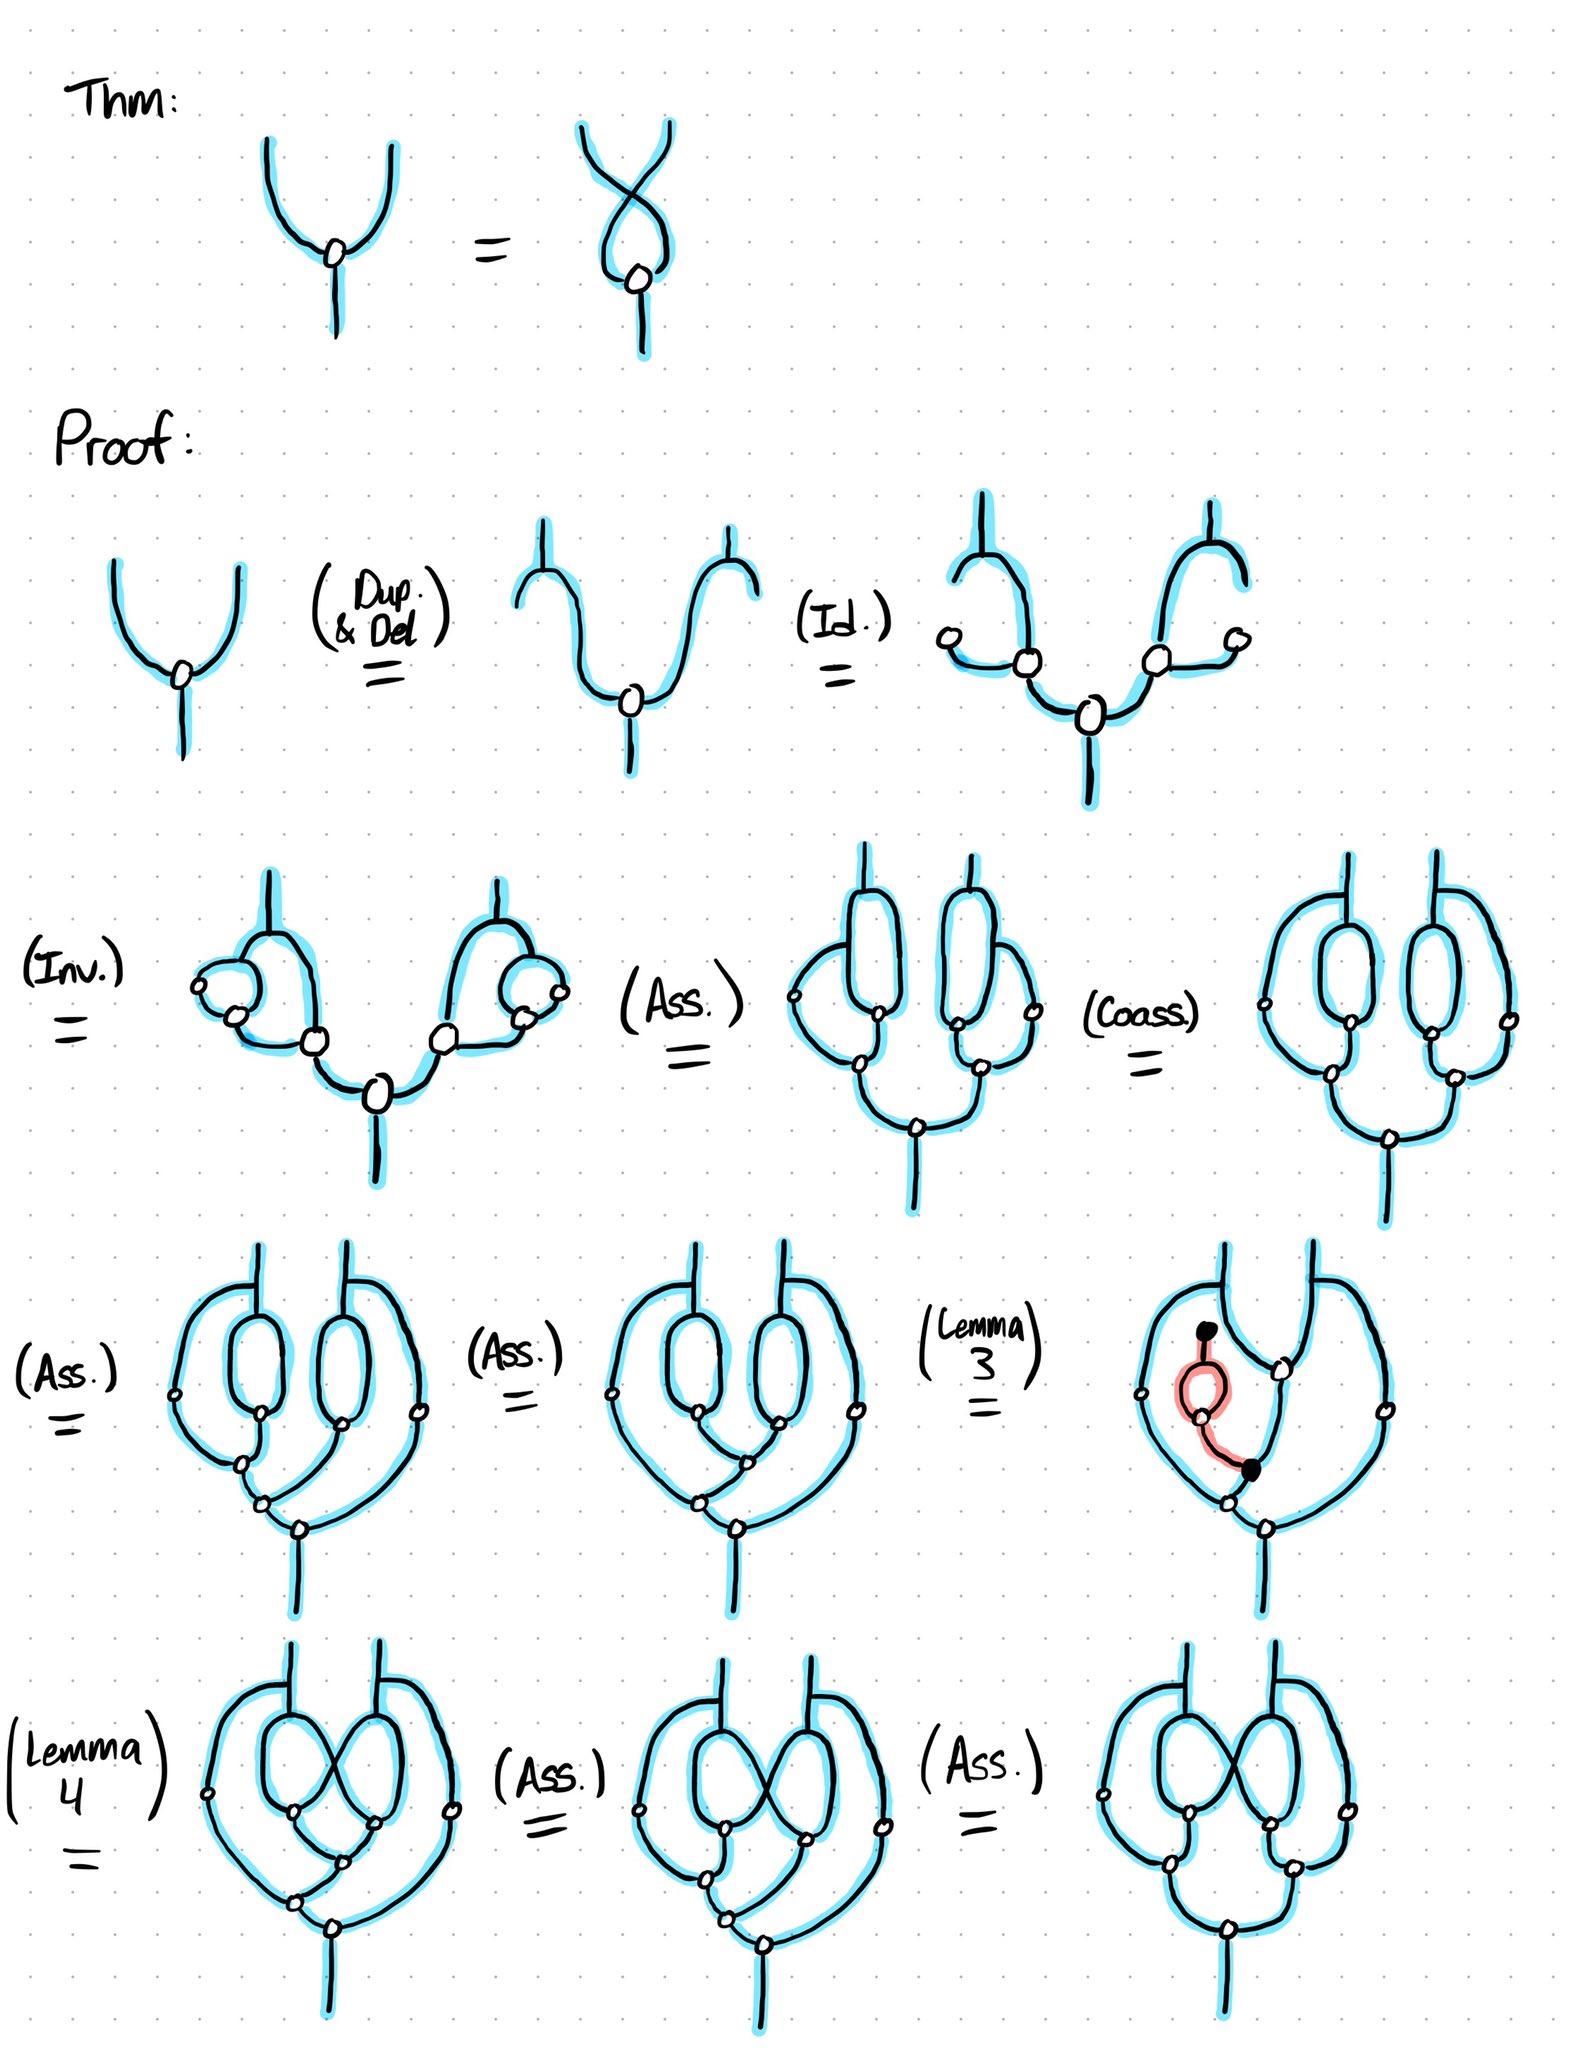 Thm:
=
Proof:
(Dup.
& Del)
=
(Id.)
=
(Inv.)
=
(Ass.)
=
(Coass.)
=
(Ass.)
=
(Ass.)
=
(Lemma
3)
=
(Lemma
4)
=
(Ass.)
=
(Ass.)
=